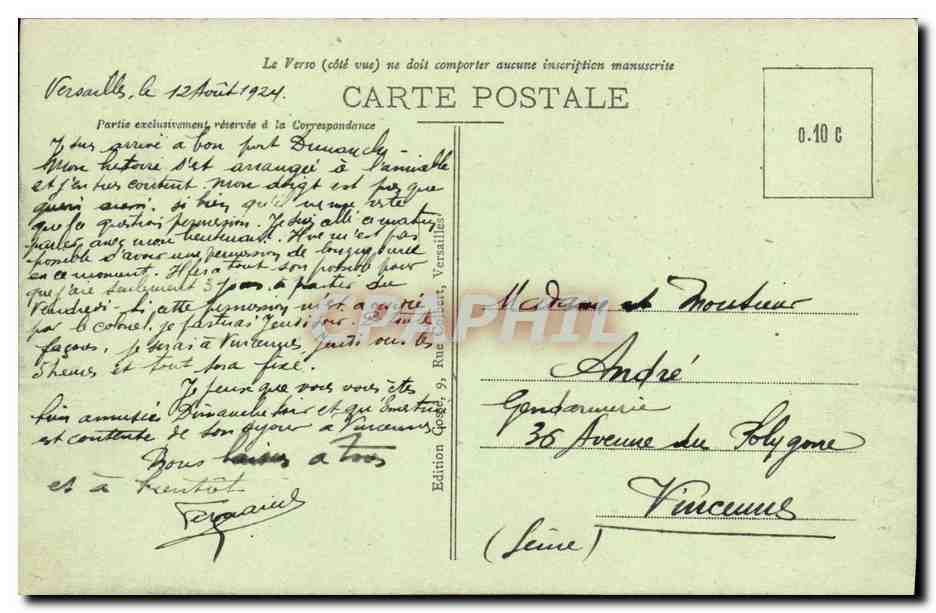 Le Verso (côté vue) ne doit comporter aucune inscription manuscrite
Versailles, le 12 Août 1924.
CARTE POSTALE
Partie exclusivement réservée à la Correspondance
0.10 c
Je suis arrivé à bon port Dimanche
Mon histoire s'est arrangée à l'amiable
et j'en suis content. Mon doigt est presque
guéri aussi. si bien qu'il ne me reste
que la question permission. Je suis allé ce matin
parler avec mon lieutenant. Il ne m'est pas
possible d'avoir une permission de longue durée
en ce moment. Il fera tout son possible pour
que j'aie seulement 3 jours à partir du
Vendredi. Si cette permission m'est
par le colonel, je partirai Jeudi soir.
façons, je serai à Vincennes jeudi vers les
5 heures et tout sera fixé.
Je pense que vous vous êtes
bien amusés Dimanche soir et qu'
est contente de son séjour à Vincennes
Bons baisers à tous
et à bientôt
Fernand
Edition Gosse, 9, Rue Colbert, Versailles
CPAPHIL
Madame et Monsieur
André
Gendarmerie
36 Avenue du Polygone
Vincennes
(Seine)